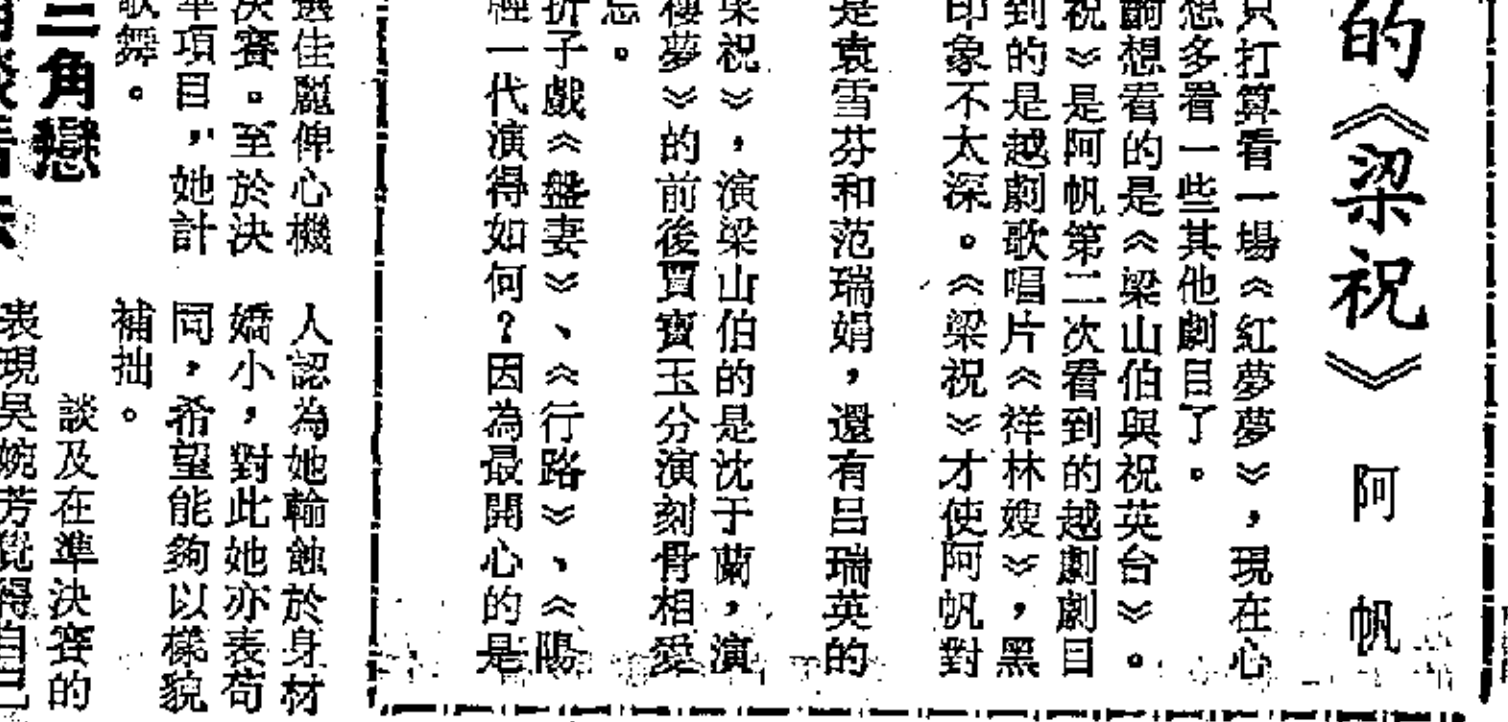 的《梁祝》 阿 帆
只打算看一場《紅夢夢》，現在心
想多看一些其他劇目了。
想看的是《梁山伯與祝英台》。
祝》是阿帆第二次看到的越劇劇目
到的是越劇歌唱片《祥林嫂》，黑
印象不太深。《梁祝》才使阿帆對
是袁雪芬和范瑞娟，還有呂瑞英的
梁祝》，演梁山伯的是沈于蘭，演
樓夢》的前後賈寶玉分演刻骨相愛
忘。
折子戲《盤妻》、《行路》、《陽
一代演得如何？因為最開心的是
選佳麗俾心機
決賽。至於決
準項目，她計
歌舞。
人認為她輸蝕於身材
嬌小，對此她亦表苟
同，希望能夠以樣貌
補拙。
三角戀
談及在準決賽的
表現吳婉芳覺得自己